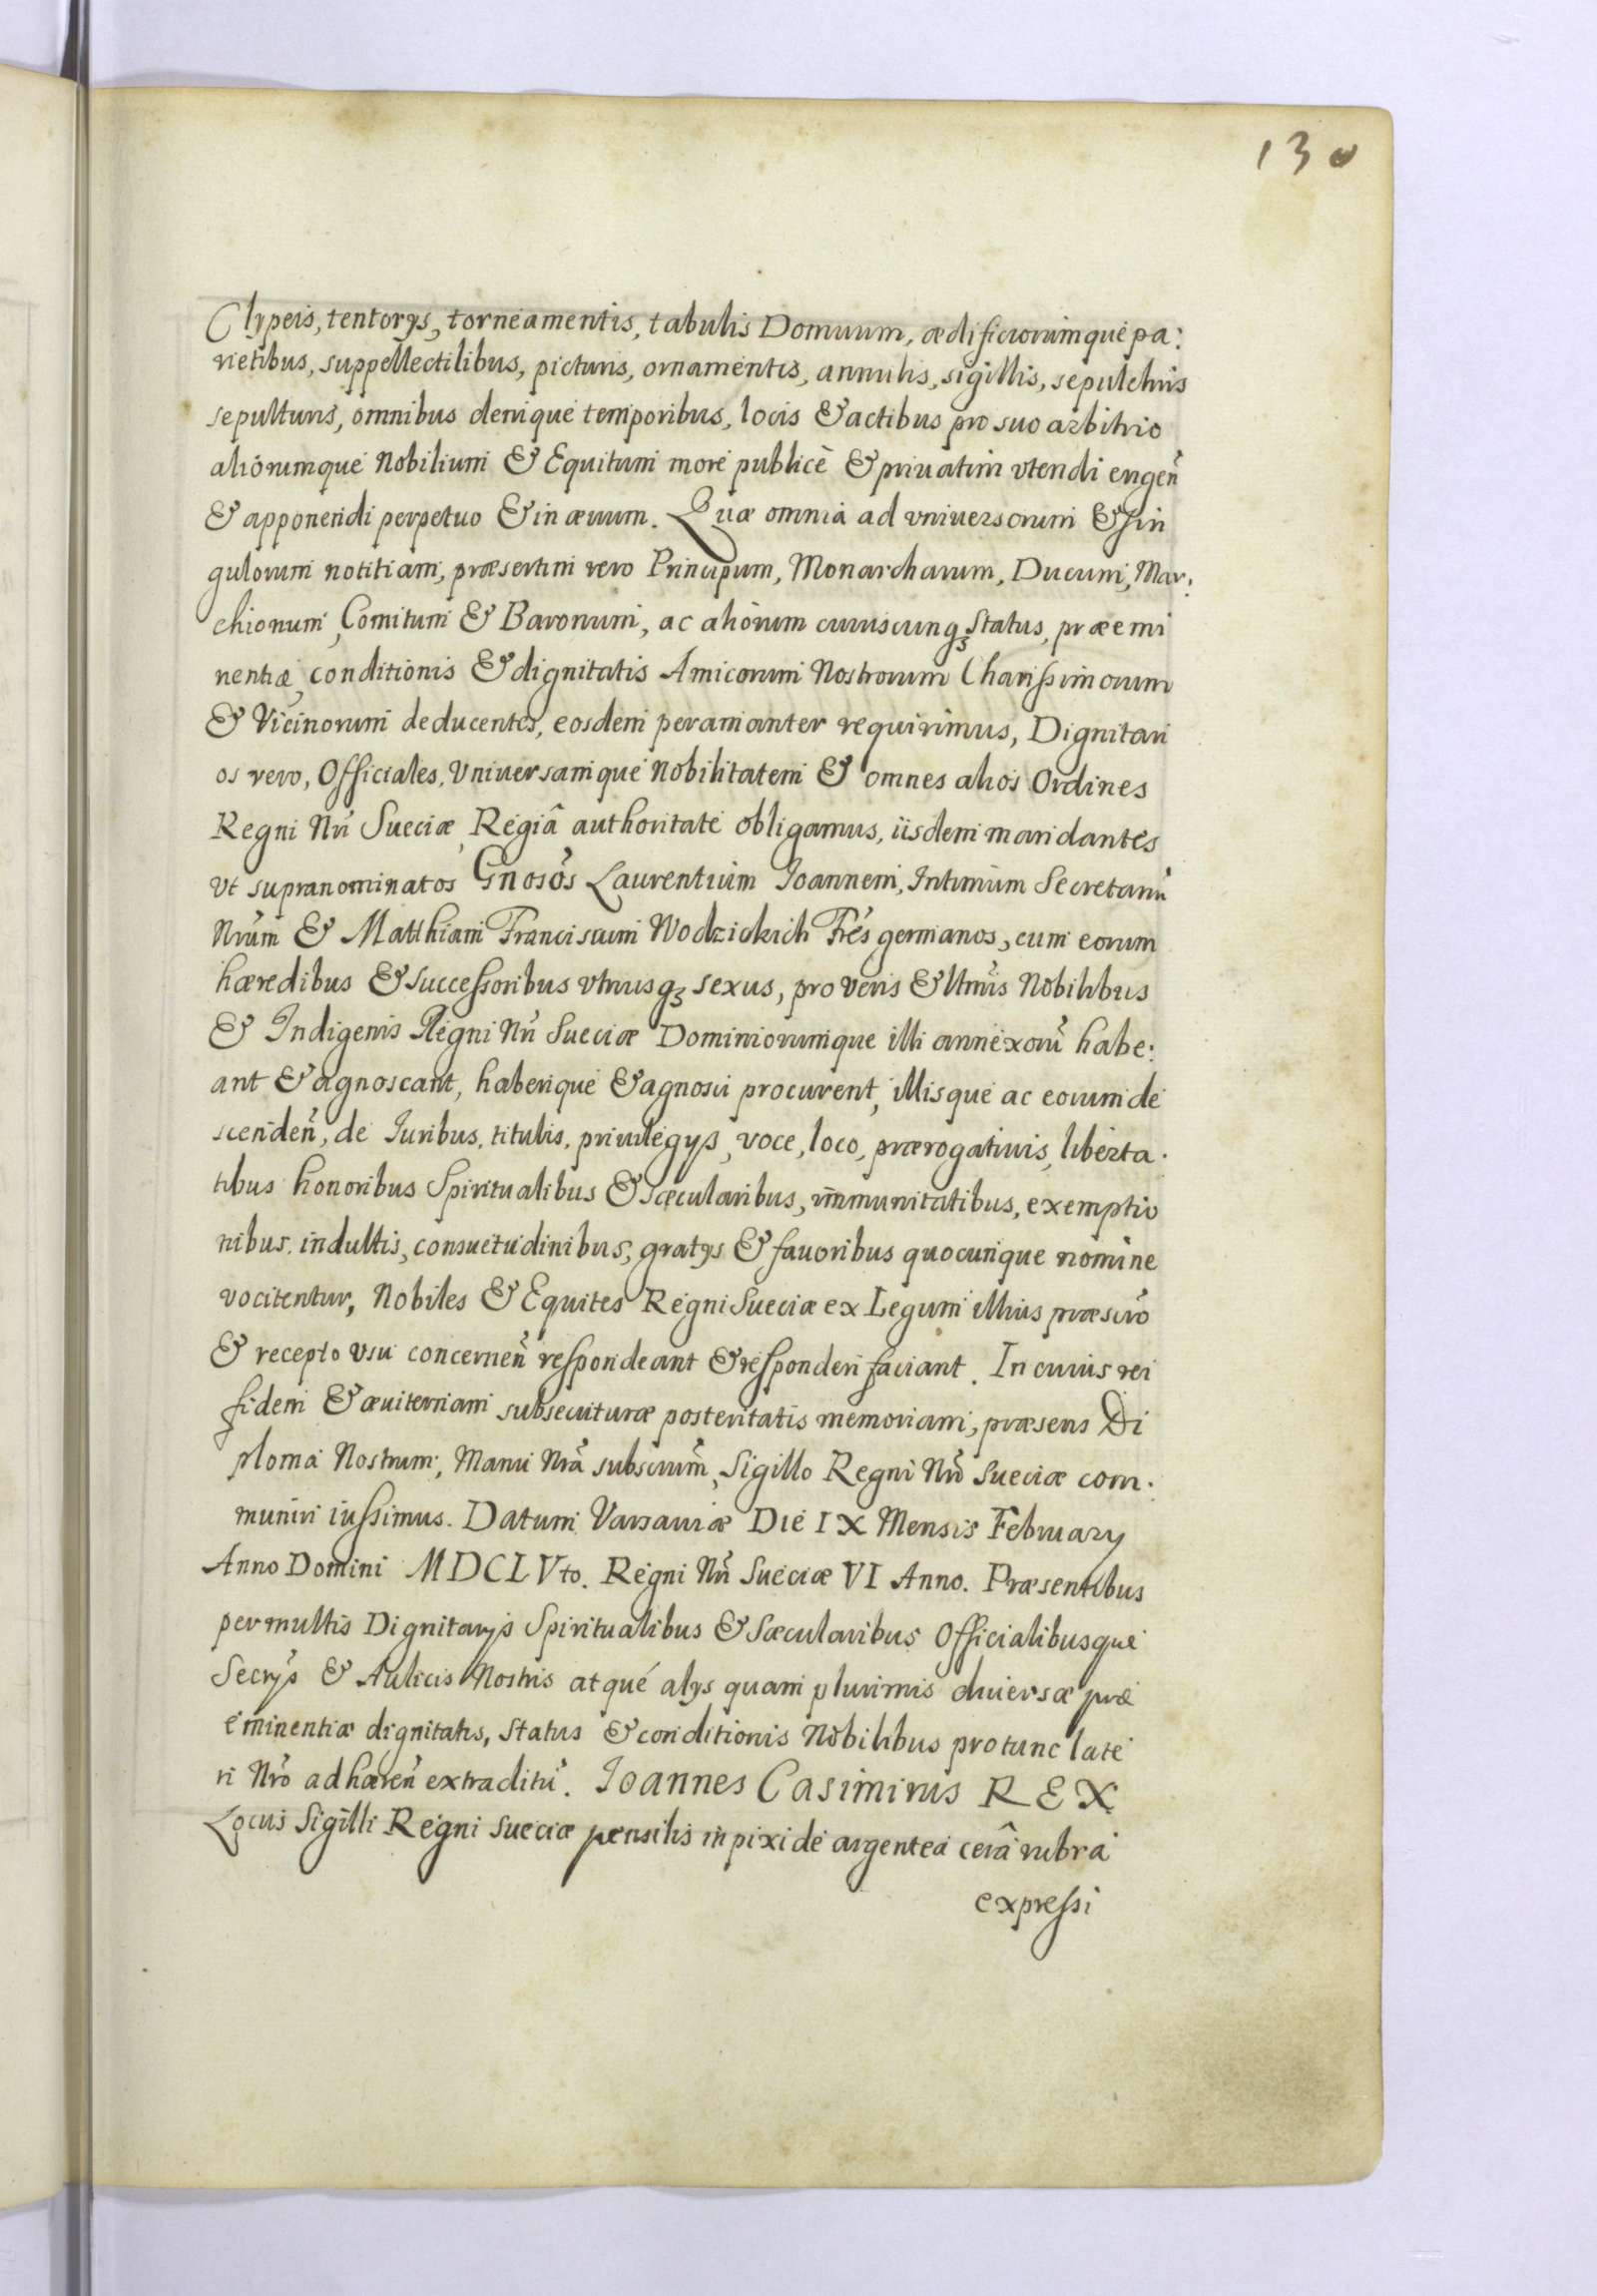 130
Clypeis, tentorys, torneamentis, tabulis Domuum, ædificiorumque pa:
rietibus, suppellectilibus, picturis, ornamentis, annulis, sigillis, sepulchris
sepulturis, omnibus denique temporibus, locis & actibus pro suo arbitrio
aliorumque Nobilium & Equitum more publicè & priuatim vtendi erigen̄
& apponendi perpetuo & in æuum. Quæ omnia ad vniuersorum & sin
gulorum notitiam, præsertim vero Principum, Monarcharum, Ducum, Mar:
chionum, Comitum & Baronum, ac aliorum cuiuscunqꝫ Status, præemi
nentiæ, conditionis & dignitatis Amicorum Nostrorum Charissimorum
& Vicinorum deducentes, eosdem peramanter requirimus, Dignitari
os vero, Officiales, Vniuersamque Nobilitatem & omnes alios Ordines
Regni Nri Sueciæ, Regiâ authoritate obligamus, iisdem mandantes
vt supranominatos Gnosos Laurentium Joannem, Intimum Secretariū
Nrum & Matthiam Franciscum Wodzickich Frēs germanos, cum eorum
hæredibus & successoribus vtriusqꝫ sexus, pro veris & ltmis Nobilibus
& Indigenis Regni Nri Sueciæ Dominiorumque illi annexorū habe:
ant & agnoscant, haberique & agnosci procurent, illisque ac eorum de
scenden̄, de Iuribus, titulis, priuilegys, voce, loco, prærogatiuis, liberta.
tibus honoribus Spiritualibus & sæcularibus, immunitatibus, exemptio
nibus, indultis, consuetudinibus, gratys & fauoribus quocunque nomine
vocitentur, Nobiles & Equites Regni Sueciæ ex Legum illius præscro
& recepto vsu concernen̄ respondeant & responderi faciant. In cuius rei
fidem & æuiternam subsecuturæ posteritatis memoriam, præsens Di
ploma Nostrum, Manu Nrā subscrum, Sigillo Regni Nri Sueciæ com.
muniri iussimus. Datum Varsauiæ Die IX Mensis February
Anno Domini MDCLVto. Regni Nri Sueciæ VI Anno. Præsentibus
permultis Dignitarys Spiritualibus & Sæcularibus Officialibusque
Secrys & Aulicis Nostris atqué alys quam plurimis diuersæ præ
eminentiæ dignitatis, Status & conditionis Nobilibus protunc late
ri Nro adhæren̄ extraditū. Joannes Casimirus REX
Locus Sigilli Regni Sueciæ pensilis in pixide argentea cerâ rubra
expressi